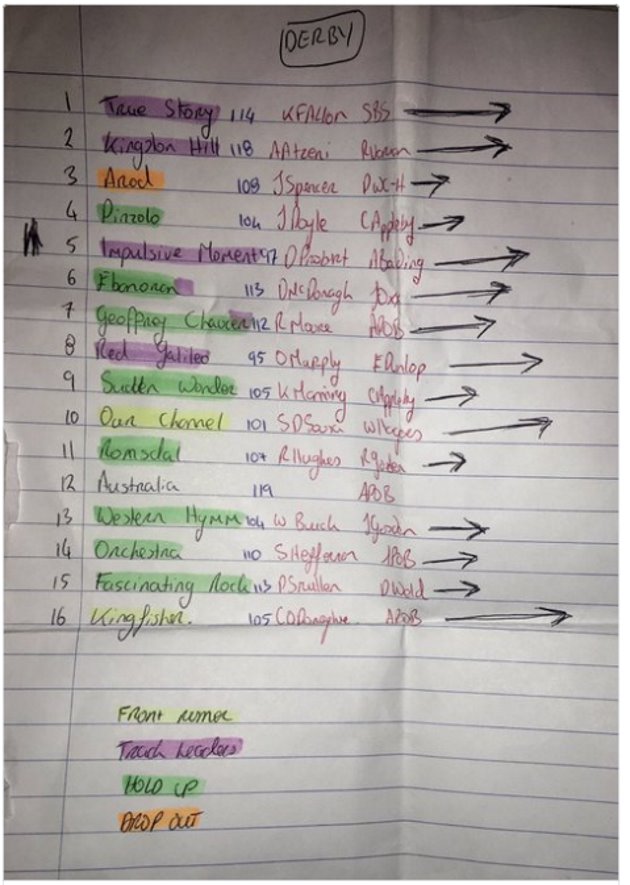 DERBY
1 True Story 114 KFAllon SBS
2 Kingston Hill 118 AAtzeni RVaran
3 Arod 109 JSpencer PWC-H
4 Pinzolo 104 JDoyle CAppleby
5 Impulsive Moment 97 DProbert ABalding
6 Ebanoran 113 DMcDonagh JOxx
7 Geoffrey Chaucer 112 RMoore APOB
8 Red Galileo 95 OMurphy EDunlop
9 Sudden Wonder 105 KManning CAppleby
10 Our Channel 101 SDSousa WHaggas
11 Romsdal 107 RHughes
12 Australia 119 APOB
13 Western Hymm 104 WBuick JGosden
14 Orchestra 110 SHeffernan APOB
15 Fascinating Rock 113 PSmullen DWeld
16 Kingfisher. 105 CODonoghue APOB
Front runner
Track Leaders
HOLD UP
DROP OUT